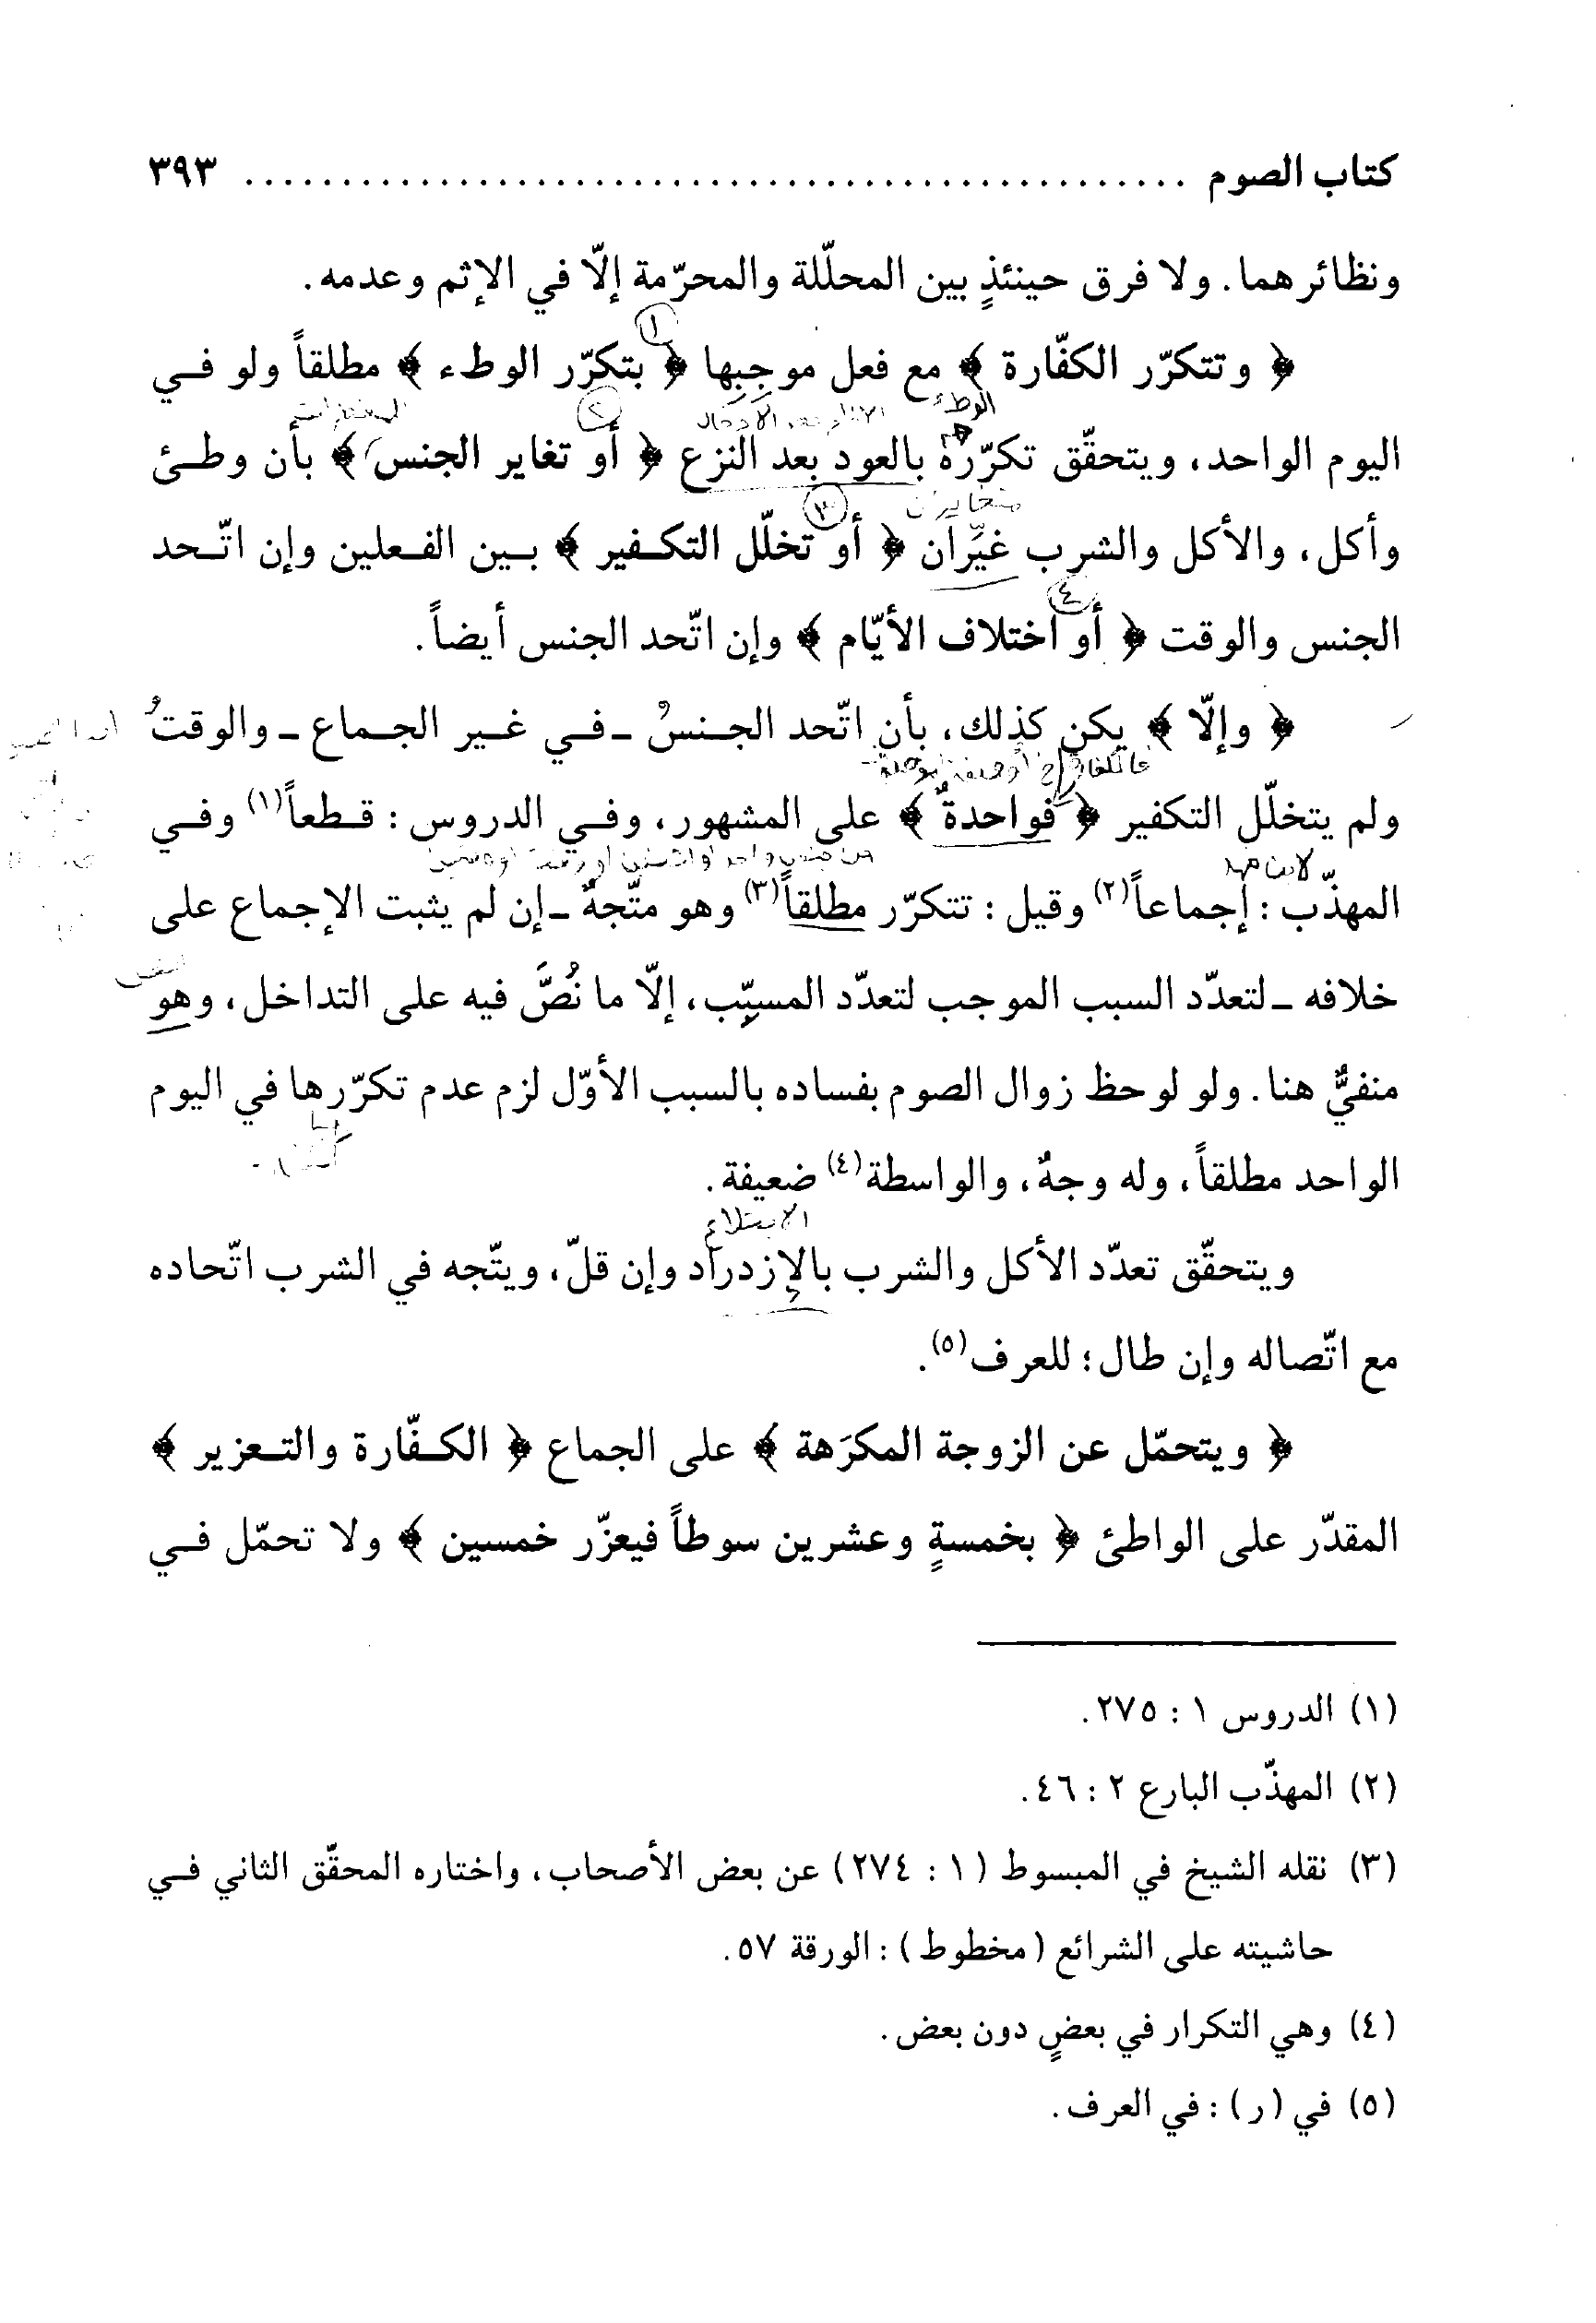 كتاب الصوم ................................................ ٣٩٣
ونظائرهما. ولا فرق حينئذٍ بين المحلّلة والمحرّمة إلّا في الإثم وعدمه.
﴿ وتتكرّر الكفّارة ﴾ مع فعل موجِبِها ﴿ بتكرّر الوطء ﴾ مطلقاً ولو فـي
١
الوطء
٢
اليوم الواحد، ويتحقّق تكرّره بالعود بعد النزع ﴿ أو تغاير الجنس ﴾ بأن وطـئ
٣
وأكل، والأكل والشرب غيّران ﴿ أو تخلّل التكـفير ﴾ بـين الفـعلين وإن اتّـحد
٤
الجنس والوقت ﴿ أو اختلاف الأيّام ﴾ وإن اتّحد الجنس أيضاً.
﴿ وإلّا ﴾ يكن كذلك، بأن اتّحد الجـنسُ ـ فـي غـير الجـماع ـ والوقتُ
ولم يتخلّل التكفير ﴿ فواحدةٌ ﴾ على المشهور، وفـي الدروس : قـطعاً(١) وفـي
المهذّب : إجماعاً(٢) وقيل : تتكرّر مطلقاً(٣) وهو متّجهٌ ـ إن لم يثبت الإجماع على
خلافه ـ لتعدّد السبب الموجب لتعدّد المسبّب، إلّا ما نُصَّ فيه على التداخل، وهو
منفيٌّ هنا. ولو لوحظ زوال الصوم بفساده بالسبب الأوّل لزم عدم تكرّرها في اليوم
الواحد مطلقاً، وله وجهٌ، والواسطة(٤) ضعيفة.
الابتلاع
ويتحقّق تعدّد الأكل والشرب بالإزدراد وإن قلّ، ويتّجه في الشرب اتّحاده
مع اتّصاله وإن طال؛ للعرف(٥).
﴿ ويتحمّل عن الزوجة المكرَهة ﴾ على الجماع ﴿ الكـفّارة والتـعزير ﴾
المقدّر على الواطئ ﴿ بخمسةٍ وعشرين سوطاً فيعزّر خمسين ﴾ ولا تحمّل فـي
(١) الدروس ١ : ٢٧٥.
(٢) المهذّب البارع ٢ : ٤٦.
(٣) نقله الشيخ في المبسوط (١ : ٢٧٤) عن بعض الأصحاب، واختاره المحقّق الثاني فـي
حاشيته على الشرائع (مخطوط) : الورقة ٥٧.
(٤) وهي التكرار في بعضٍ دون بعض.
(٥) في (ر) : في العرف.